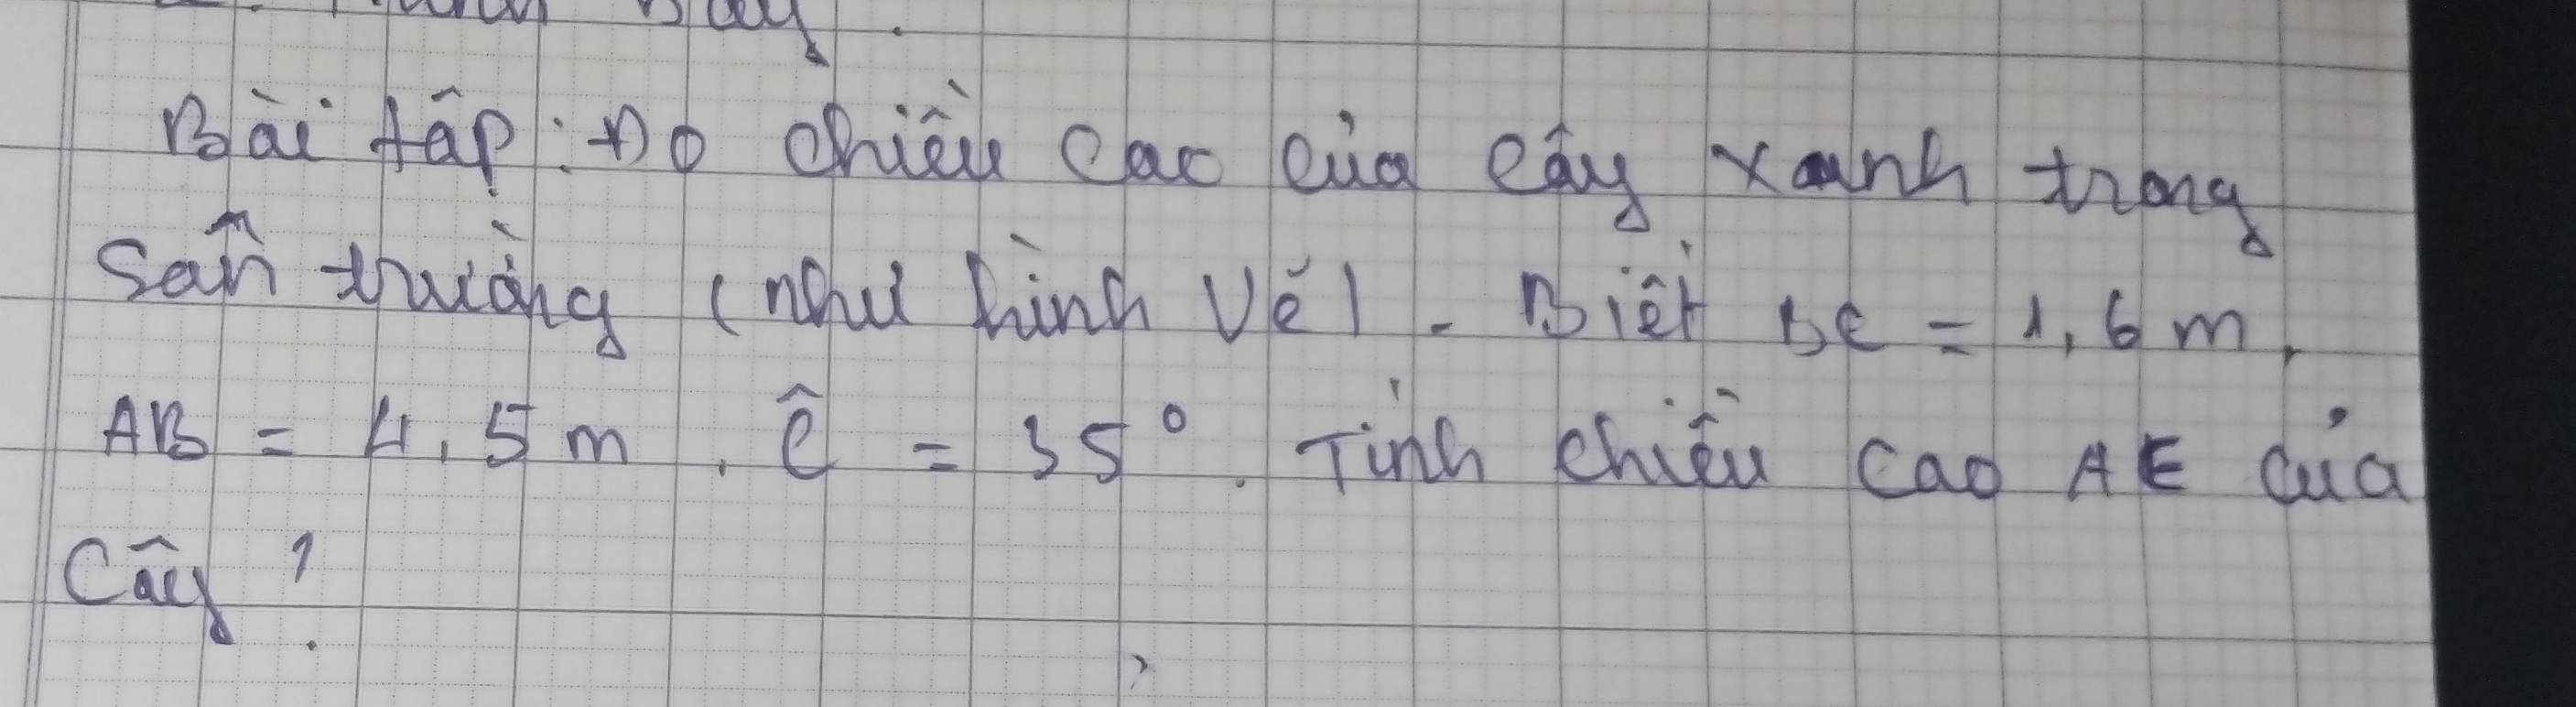 Bài tập: Đo chiều cao của cây xanh trong
sân trường (như hình vẽ). Biết BC = 1,6 m,
AB = 4,5 m. Ĉ = 35°. Tính chiều cao AE của
cây?